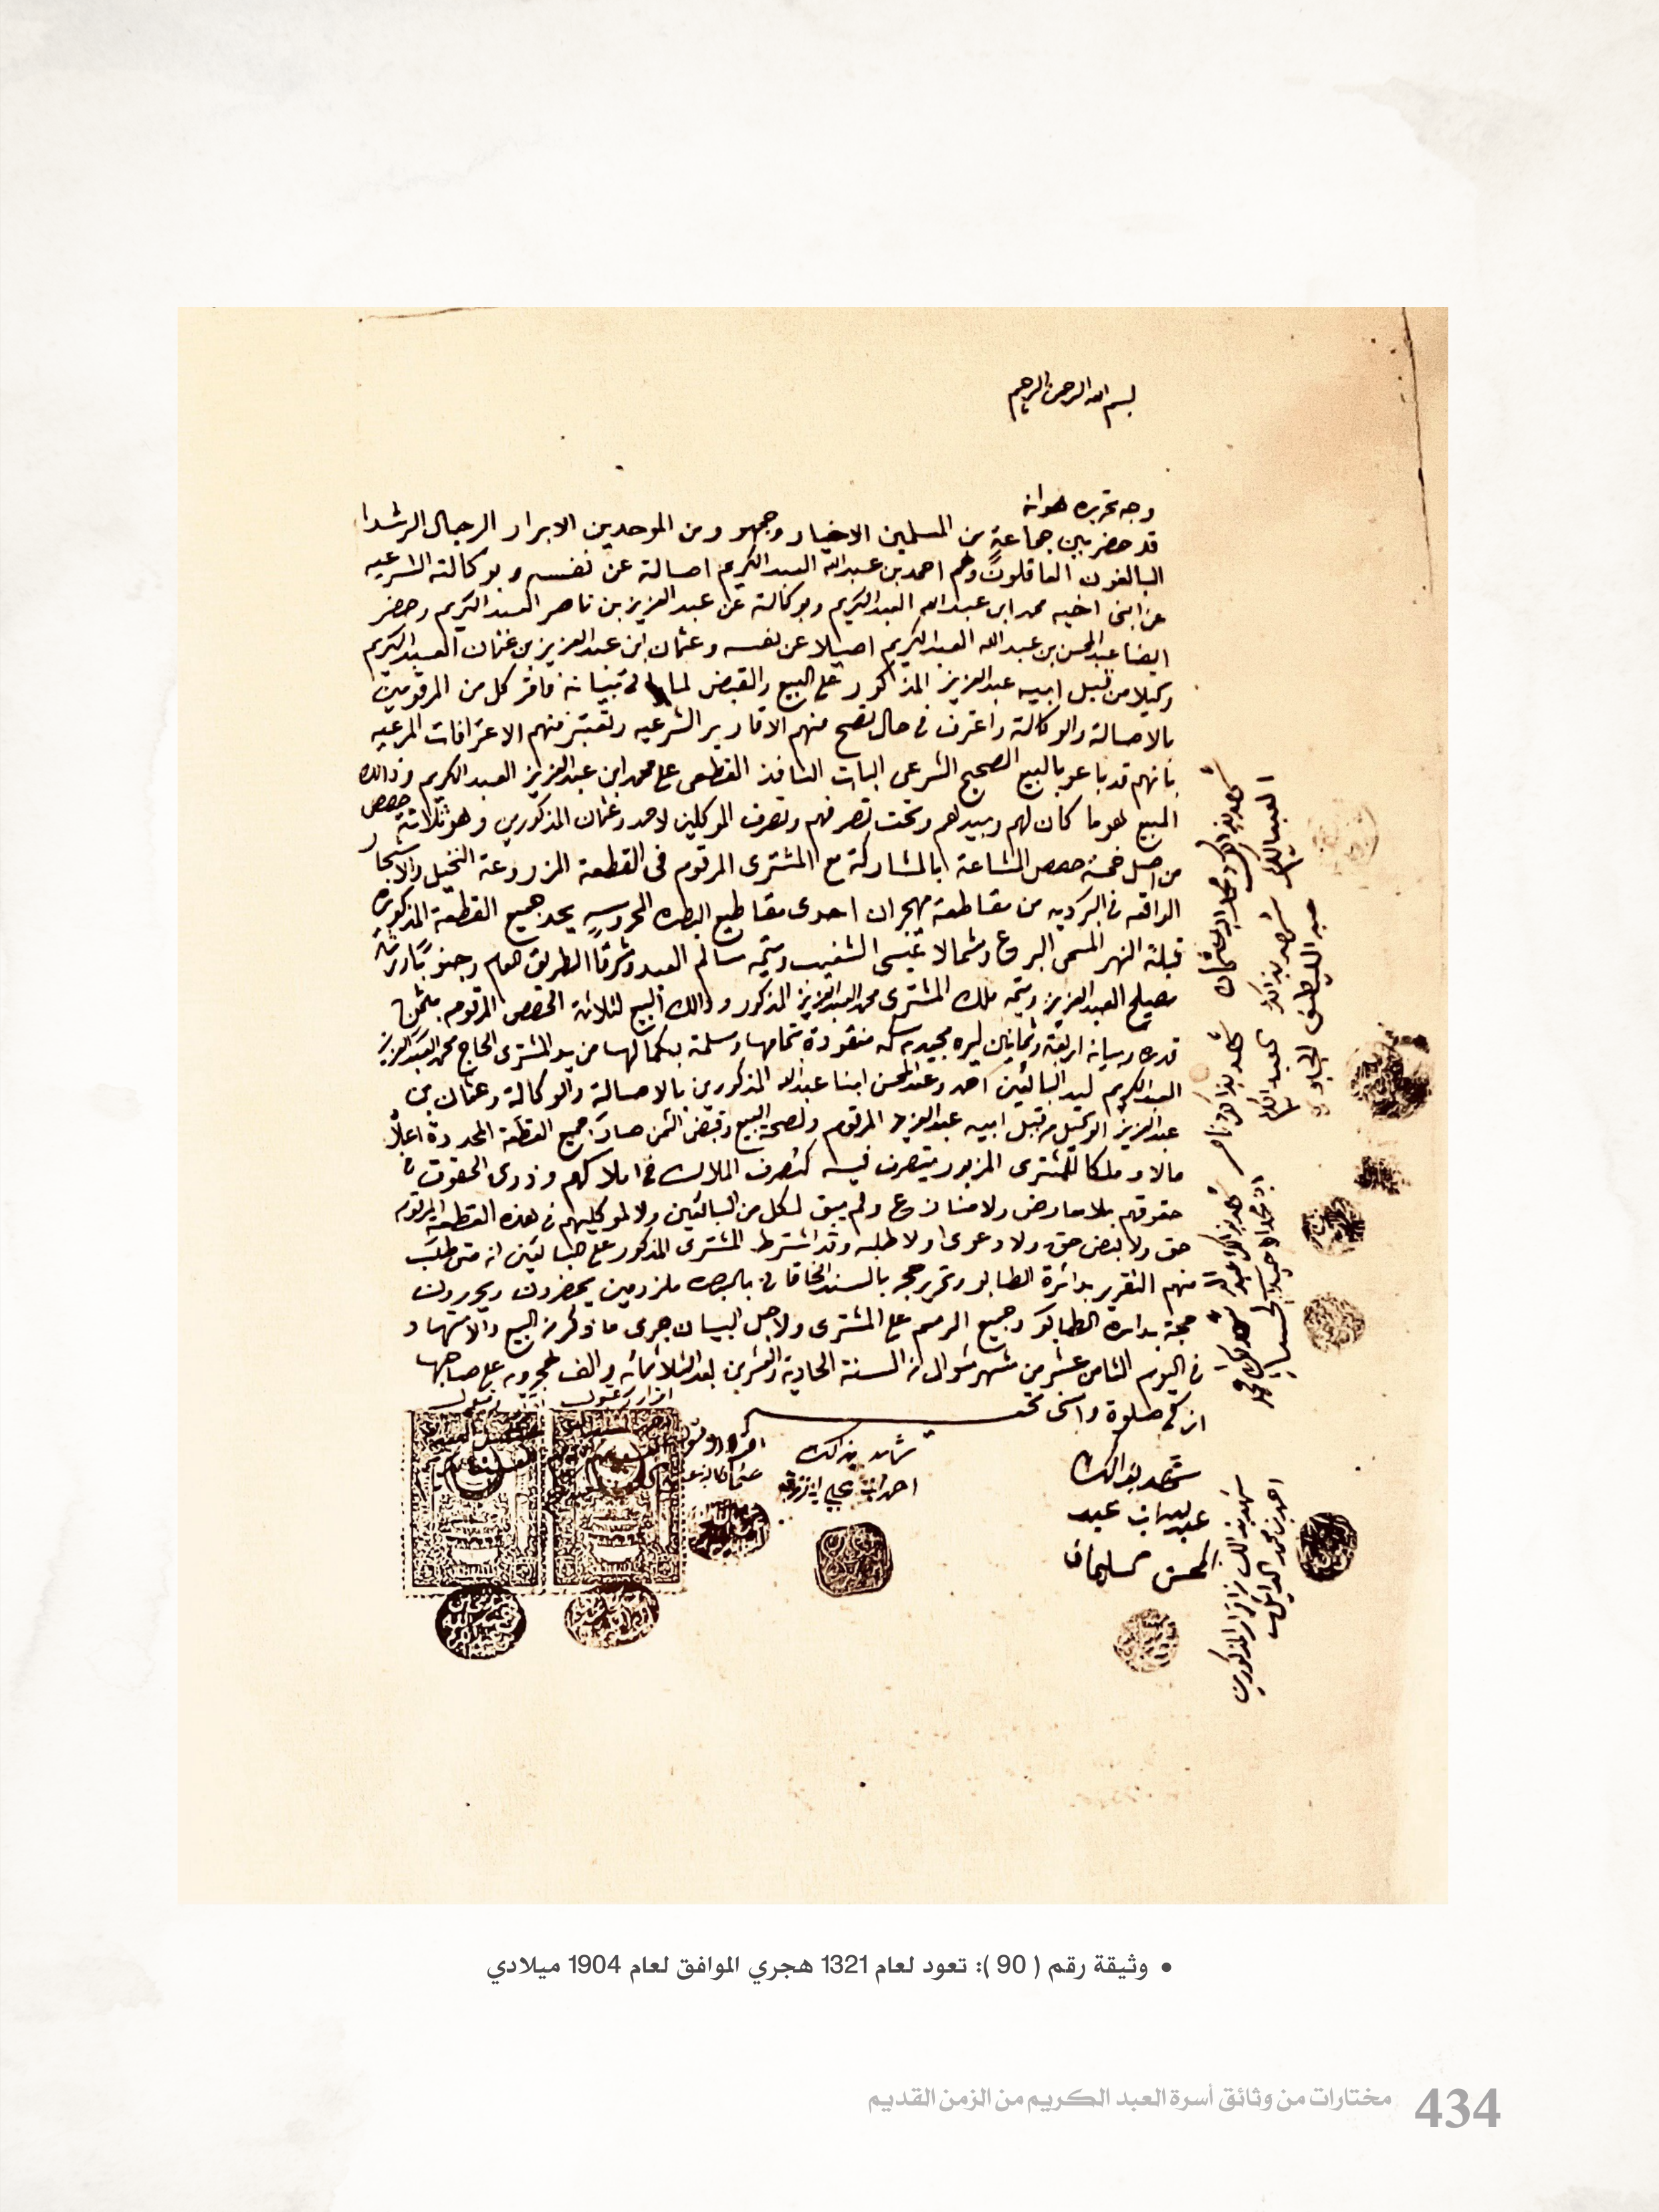 بسم الله الرحمن الرحيم
وجه تحريره هو انه
قد حضر بين جماعة من المسلمين الاخيار وجمهور من الموحدين الابرار الرجال الرشدا
البالغون العاقلون وهم احمد بن عبدالله العبدالكريم اصالة عن نفسه وبوكالته الشرعيه
عن ابن اخيه محمد ابن عبدالله العبدالكريم وبوكالة عن عبدالعزيز بن ناصر العبدالكريم وحضر
ايضا عبدالمحسن بن عبدالله العبدالكريم اصيلا عن نفسه وعثمان ابن عبدالعزيز بن عثمان العبدالكريم
وكيلا من قبل ابيه عبدالعزيز المذكور على البيع والقبض لما ياتي تبيانه فاقر كل من المرقومين
بالاصالة والوكالة واعترف في حال تصح منهم الاقارير الشرعيه وتعتبر منهم الاعترافات المرعيه
بانهم قد باعو بالبيع الصحيح الشرعي البات النافذ القطعي على محمد ابن عبدالعزيز العبدالكريم وذالك
المبيع هو ما كان لهم وبيدهم وتحت تصرفهم وتصرف الموكلين لاحمد وعثمان المذكورين وهو ثلاثة حصص
من اصل خمسة حصص المشاعة بالمشاركة مع المشتري المرقوم في القطعة المزروعة النخيل والاشجار
الواقعه في البركديه من مقاطعة مهجران احدى مقاطيع البصره المحروسه يحد جميع القطعة المذكوره
قبلة النهر المسمى البروع وشمالا عيسى الشغيب ويتمه سالم العبد وشرقا الطريق العام وجنوبا ورثة
مصيلح العبدالعزيز ويتمه ملك المشتري محمد العبدالعزيز المذكور وذالك البيع لثلاثة الحصص المرقوم بثمن
قدره وبيانه اربعة وثمانين ليره مجيديه سكه منقودة بتمامها وسلمة بكمالها من يد المشتري الحاج محمد العبدالعزيز
العبدالكريم ليد البائعين احمد وعبدالمحسن ابنا عبدالله المذكورين بالاصالة والوكالة وعثمان بن
عبدالعزيز الوكيل من قبل ابيه عبدالعزيز المرقوم ولصحة البيع وقبض الثمن صارة جميع القطعة المحدودة اعلاه
مالا وملكا للمشتري المزبور يتصرف فيه كتصرف الملاك في املاكهم وذوى الحقوق في
حقوقهم بلا معارض ولا منازع ولم يبق لكل من البائعين ولا لموكليهم في هذه القطعة المرقومه
حق ولا بعض حق ولا دعوى ولا طلبه وقد اشترط المشتري المذكور على البائعين انه متى طلب
منهم التقرير بدائرة الطابو وتحرير حجه بالسند الخاقاني بالبصره ملزومين يحضرون ويحررون
حجة بدائرة الطابو وجميع الرسم على المشتري ولاجل البيان جرى ما ذكر من البيع والاشهاد
في اليوم الثامن عشر من شهر شوال من السنة الحادية والعشرين بعد الثلاثمائه والف هجريه على صاحبها
ازكى صلوة واسنى تحيه
شهد بذالك
عبدالله ابن عبد
المحسن سليمان
شاهد بذالك
احمد ابن علي
شهد بذالك
العبدالكريم
شهد بذالك
احمد بن محمد
• وثيقة رقم ( 90 ): تعود لعام 1321 هجري الموافق لعام 1904 ميلادي
434 مختارات من وثائق أسرة العبد الكريم من الزمن القديم